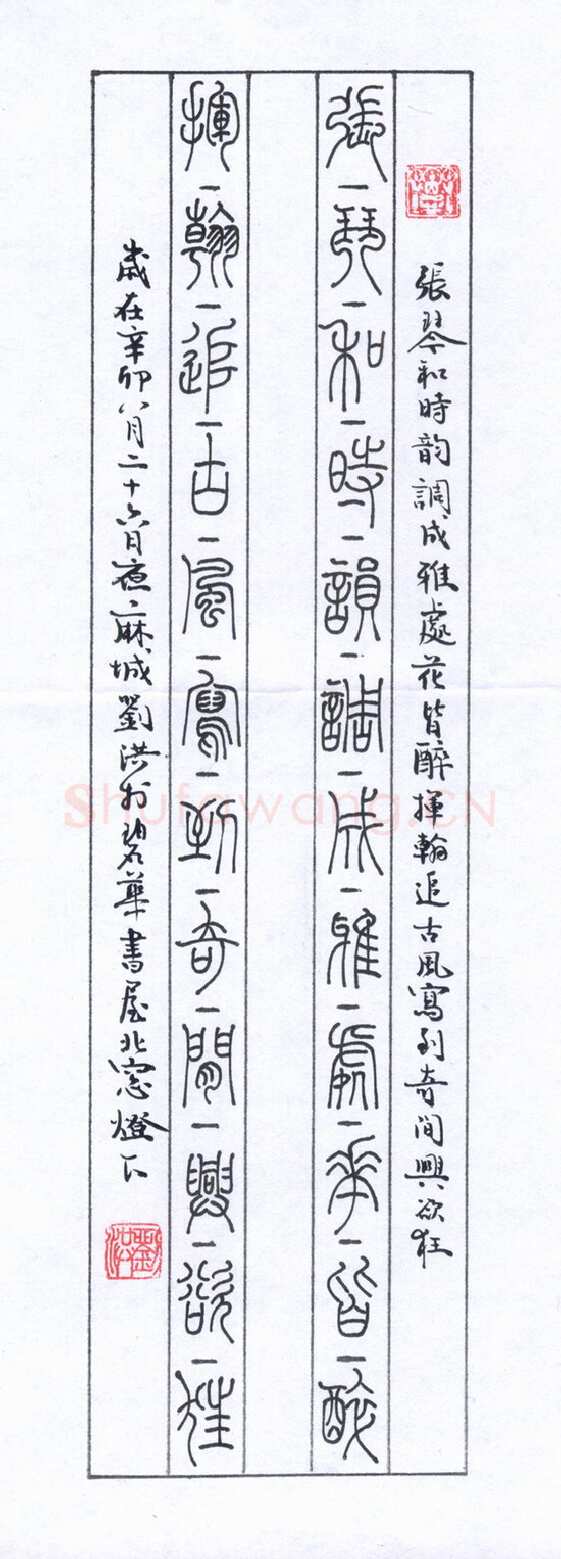 張琴和時韵調成雅處花皆醉揮翰追古風寫到奇间興欲狂
張琴和時韻調成雅處華皆醉
揮翰追古風寫到奇閒興欲狂
歲在辛卯八月二十六日夜麻城劉洪於碧華書屋北窓燈下
劉洪
Shufawang.CN